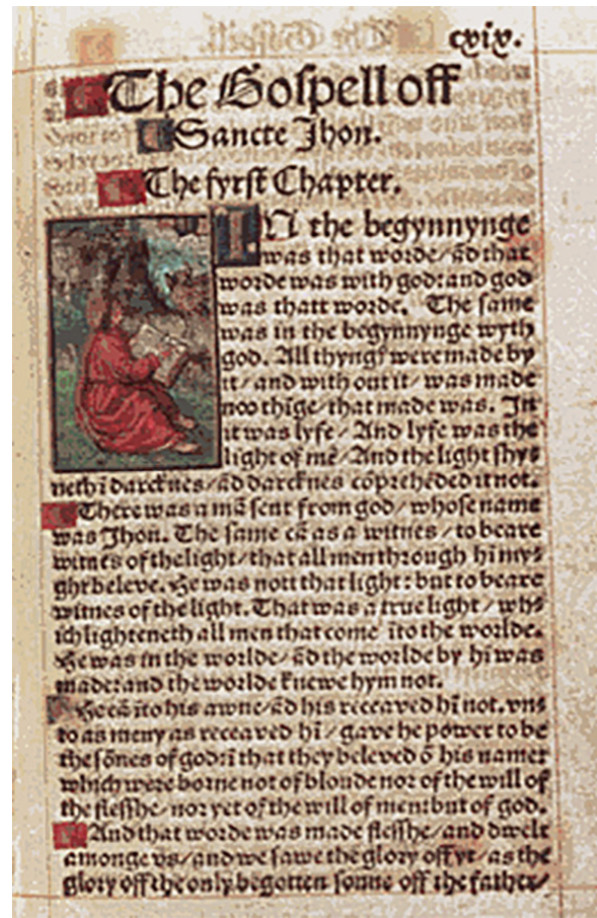 cxix.
The Gospell off
Sancte Jhon.
The fyrst Chapter.
IN the begynnynge
was that worde/ ãd that
worde was with god: and god
was thatt worde. The same
was in the begynnynge wyth
god. All thyngs were made by
it/ and with out it/ was made
noo thĩge/ that made was. In
it was lyfe/ And lyfe was the
light of mẽ/ And the light shy⸗
neth ĩ darcknes/ ãd darcknes cõprehẽded it not.
There was a mã sent from god/ whose name
was Jhon. The same cã as a witnes/ to beare
witnes of the light/ that all men through hĩ my⸗
ght beleve. He was nott that light: but to beare
witnes of the light. That was a true light/ wh⸗
ich lighteneth all men that come ĩto the worlde.
He was in the worlde/ ãd the worlde by hĩ was
made: and the worlde knewe hym not.
He cã ĩto his awne/ ãd his receaved hĩ not. vns
to as meny as receaved hĩ/ gave he power to be
the sõnes of god: ĩ that they beleved õ his name:
which were borne not of bloude nor of the will of
the flesshe/ nor yet of the will of men: but of god.
And that worde was made flesshe/ and dwelt
amonge vs/ and we sawe the glory off yt/ as the
glory off the only begotten sonne off the father/